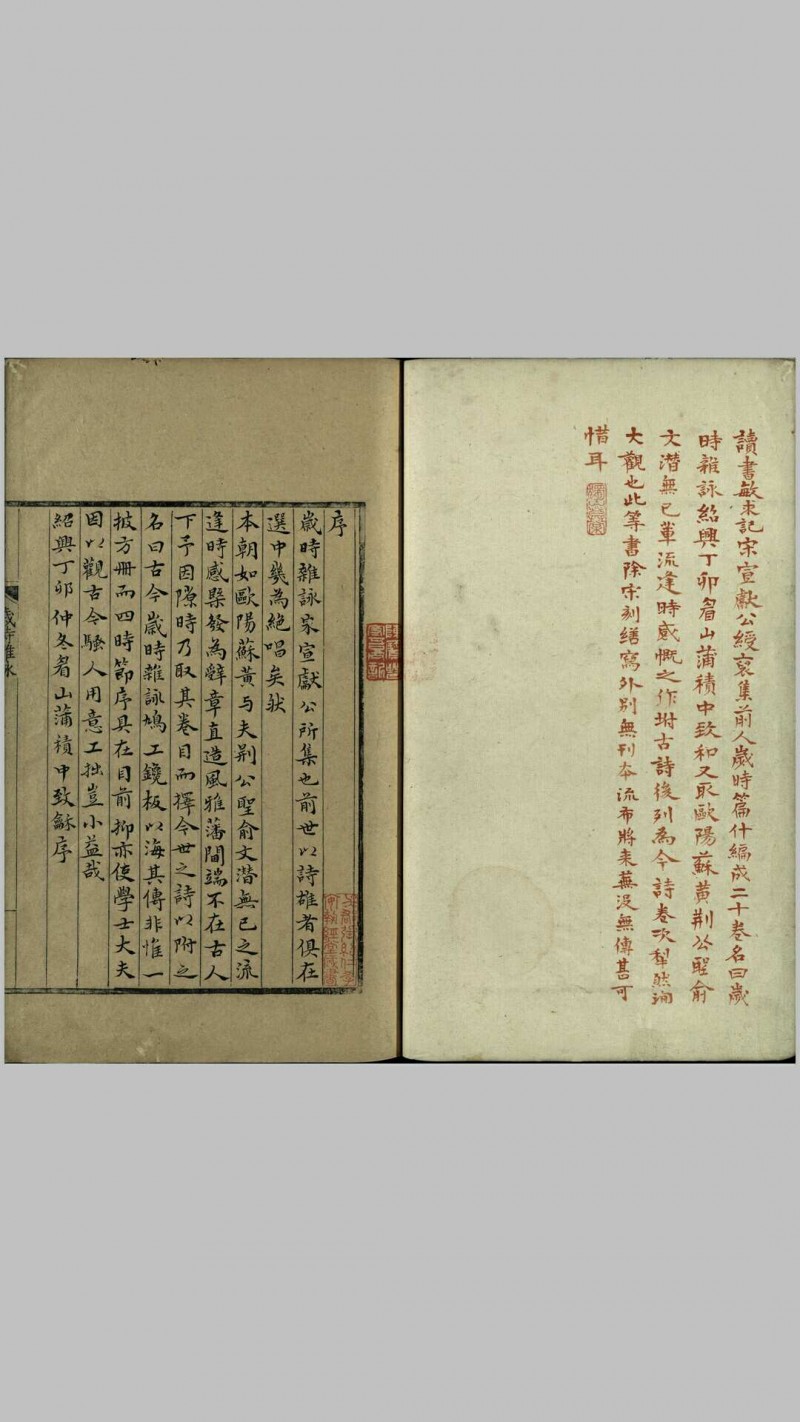 讀書敏求記宋宣獻公綬裒集前人歲時篇什編成二十卷名曰歲
時雜詠紹興丁卯眉山蒲積中致和又取歐陽蘇黃荆公聖俞
文潛無已軰流逢時感慨之作坿古詩後列為今詩卷次犁然洵
大觀也此等書除宋刻繕寫外別無刊本流布將来蕪沒無傳甚可
惜耳
序
歲時雜詠宋宣獻公所集也前世以詩雄者俱在
選中幾為絶唱矣狀
本朝如歐陽蘇黃与夫荆公聖俞文潛無已之流
逢時感槩發為辭章直造風雅藩閫端不在古人
下予因隙時乃取其卷目而擇今世之詩以附之
名曰古今歲時雜詠鳩工鏤板以海其傳非惟一
披方冊而四時節序具在目前抑亦使學士大夫
因以觀古今騷人用意工拙豈小益哉
紹興丁卯仲冬眉山蒲積中致龢序